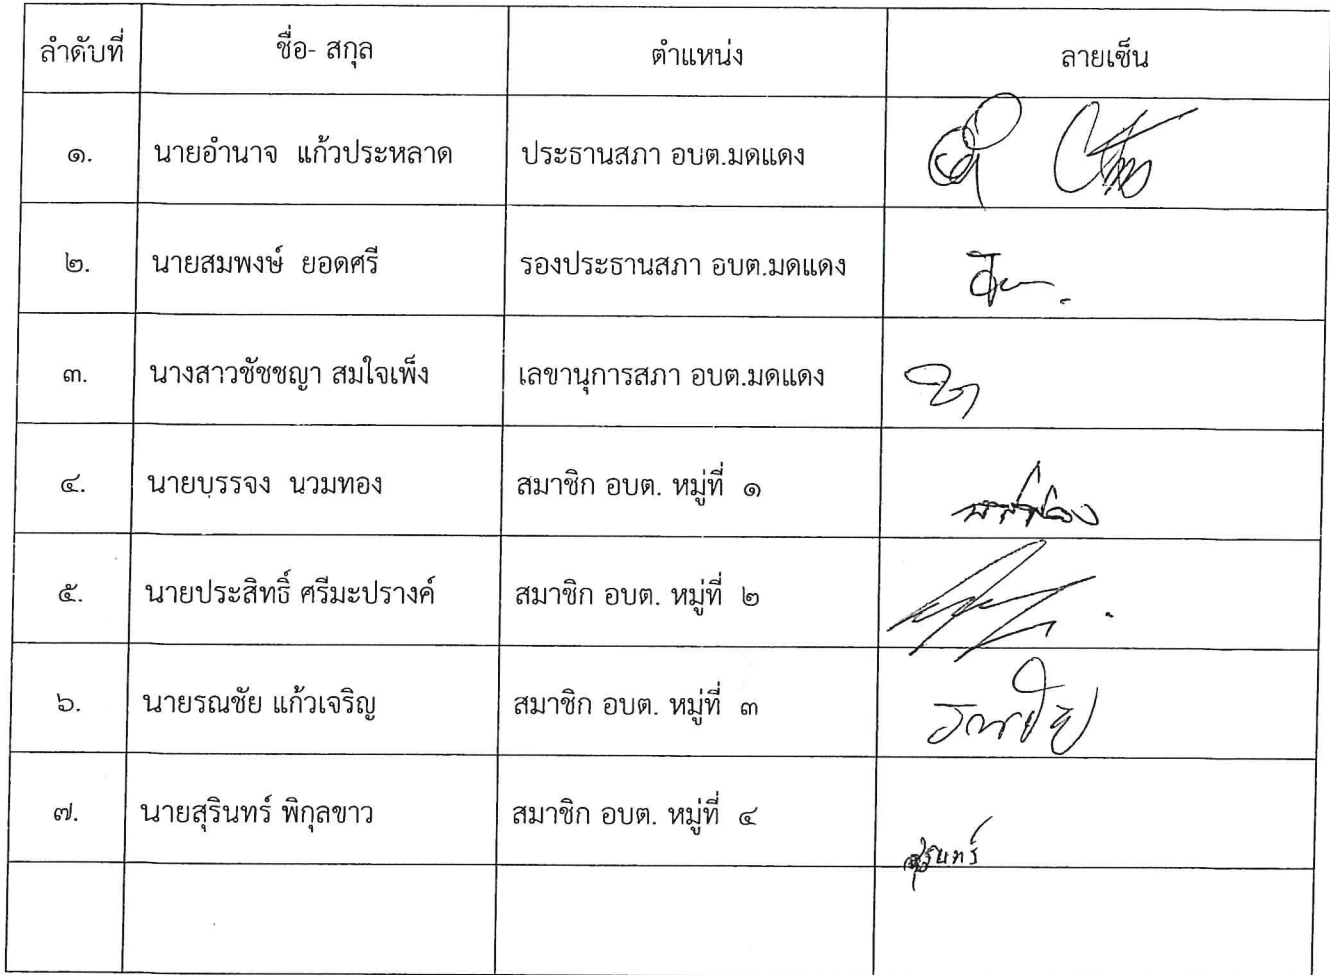 ลำดับที่ ชื่อ- สกุล ตำแหน่ง ลายเซ็น
๑. นายอำนาจ แก้วประหลาด ประธานสภา อบต.มดแดง
๒. นายสมพงษ์ ยอดศรี รองประธานสภา อบต.มดแดง
๓. นางสาวชัชชญา สมใจเพ็ง เลขานุการสภา อบต.มดแดง
๔. นายบรรจง นวมทอง สมาชิก อบต. หมู่ที่ ๑
๕. นายประสิทธิ์ ศรีมะปรางค์ สมาชิก อบต. หมู่ที่ ๒
๖. นายรณชัย แก้วเจริญ สมาชิก อบต. หมู่ที่ ๓ รณชัย
๗. นายสุรินทร์ พิกุลขาว สมาชิก อบต. หมู่ที่ ๔ สุรินทร์